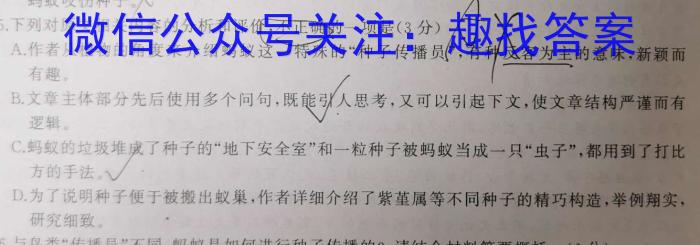 蚂蚁咬伤种子。
5.下列对 的分析和评价,不正确的一项是(3分)
微信公众号关注:趣找答案
A.作者从 物的角度来介绍蚂蚁这一特殊的“种子传播员”,有种反客为主的意味,新颖而
有趣。
B.文章主体部分先后使用多个问句,既能引人思考,又可以引起下文,使文章结构严谨而有
逻辑。
C.蚂蚁的垃圾堆成了种子的“地下安全室”和一粒种子被蚂蚁当成一只“虫子”,都用到了打比
方的手法。
D.为了说明种子便于被搬出蚁巢,作者详细介绍了紫堇属等不同种子的精巧构造,举例翔实,
研究细致。
与鸟类“传播员”不同,蚂蚁是如何进行种子传播的?请结合材料简要概括。